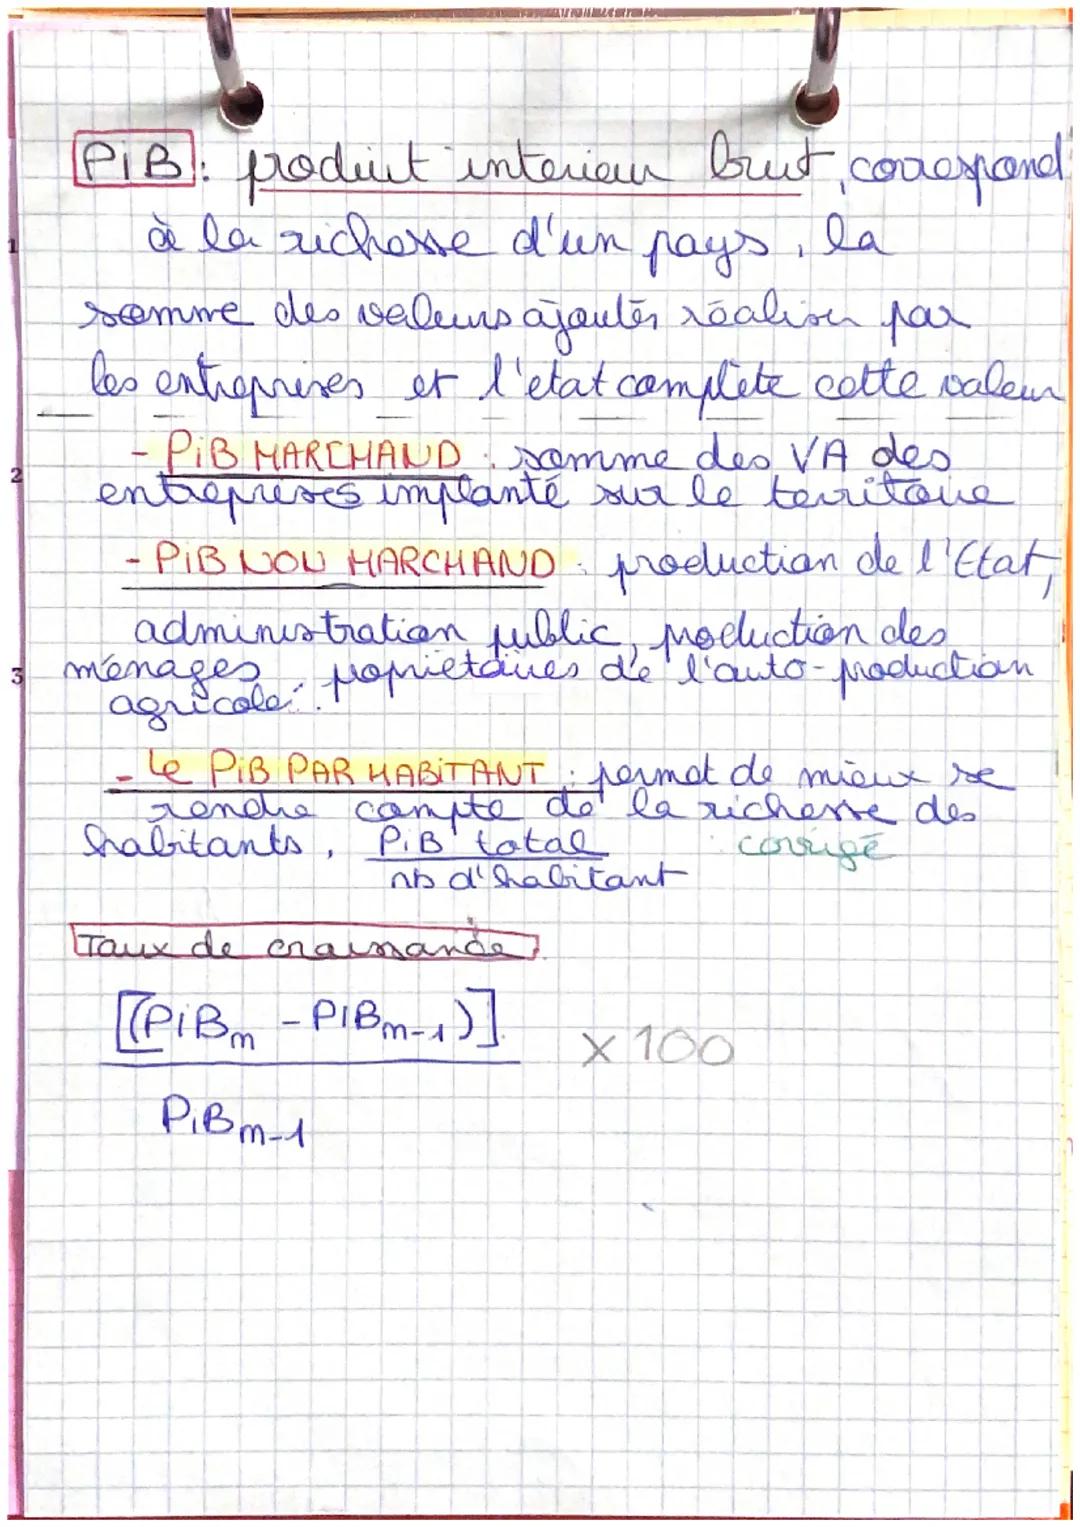 PiB : produit interieur brut, correspond
à la richesse d'un pays, la
somme des valeurs ajoutés réaliser par
les entreprises et l'etat complète cette valeur
- PiB MARCHAND : somme des VA des
entreprises implanté sur le territoire
- PiB NON MARCHAND : production de l'Etat,
administration public, production des
ménages, propriétaires de l'auto-production
agricole.
- Le PiB PAR HABITANT : permet de mieux se
rendre compte de la richesse des
habitants, PiB total
corrigé
nb d'habitant
Taux de croissance
[(PiBm - PiBm-1)]
x 100
PiBm-1
1
2
3